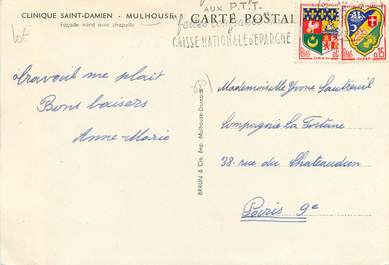 CLINIQUE SAINT-DAMIEN - MULHOUSE
Façade nord avec chapelle
CARTE POSTALE
AUX P.T.T.
CAISSE NATIONALE D'EPARGNE
ORAN
ALGER
0,15
lot
Travail me plait
Bons baisers
Anne-Marie
BRAUN & Cie, Imp. Mulhouse-Dornach
Mademoiselle Yvonne Sautreuil
Compagnie La Fortune
38. rue du Chateaudun
Paris 9e